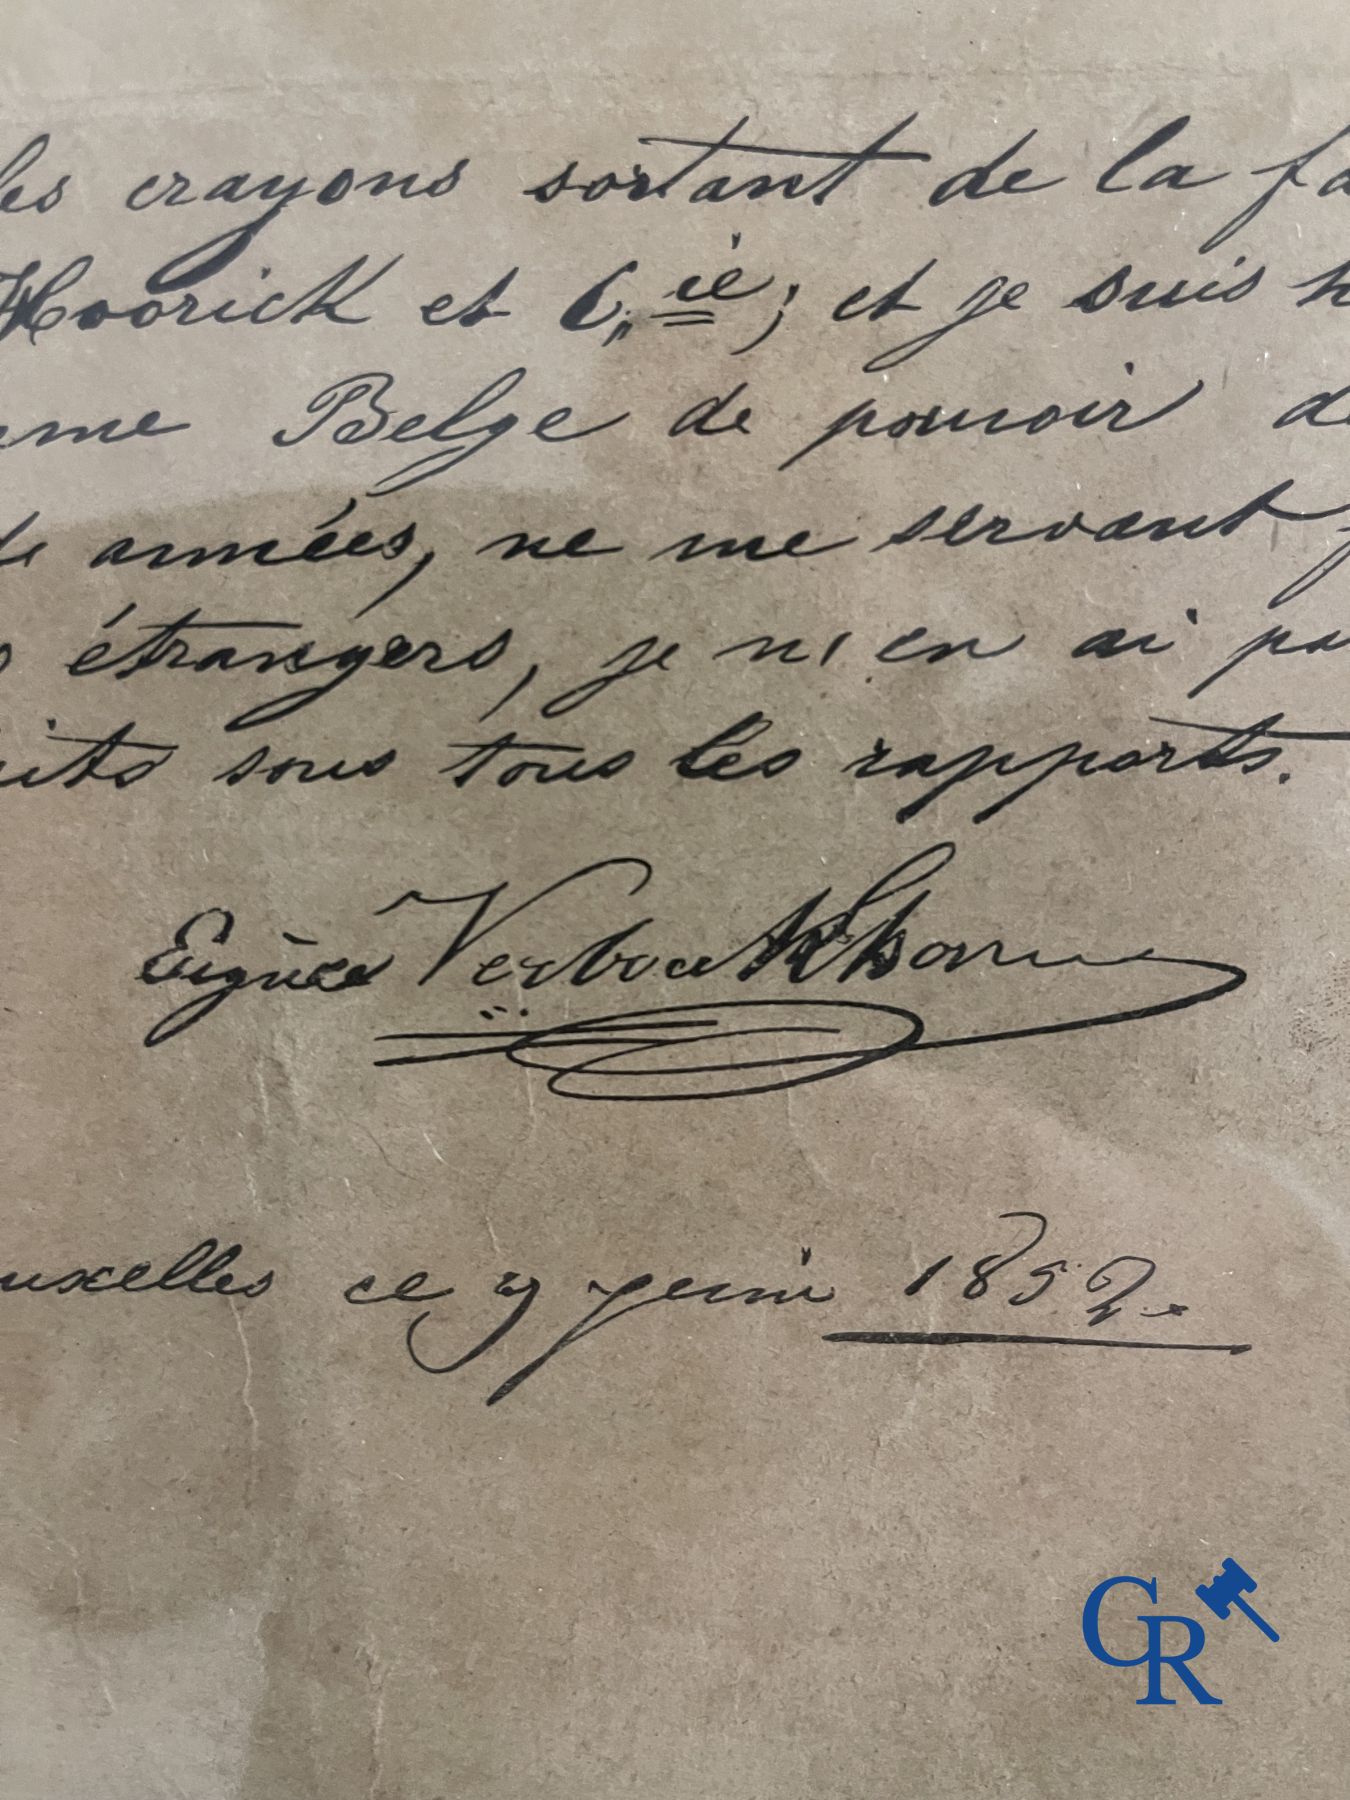 les crayons sortant de la fa
Hoorick et C,,ie; et je suis h
eme Belge de pouvoir de
de années, ne me servant
s étrangers, je n'en ai pa
uits sous tous les rapports.
Eugène Verboeckhoven
uxelles ce 9 juin 1852.
CR